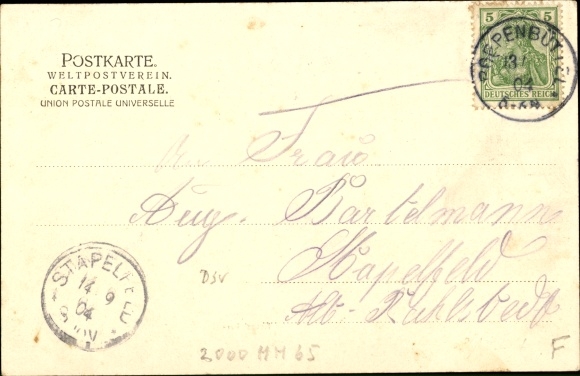 POSTKARTE.
WELTPOSTVEREIN.
CARTE-POSTALE.
UNION POSTALE UNIVERSELLE
5 5
DEUTSCHES REICH
13
04
Frau
Aug. Bartelmann
Stapelfeld
STAPELFELD
14 9
04
DSV
2000 MM 65
F